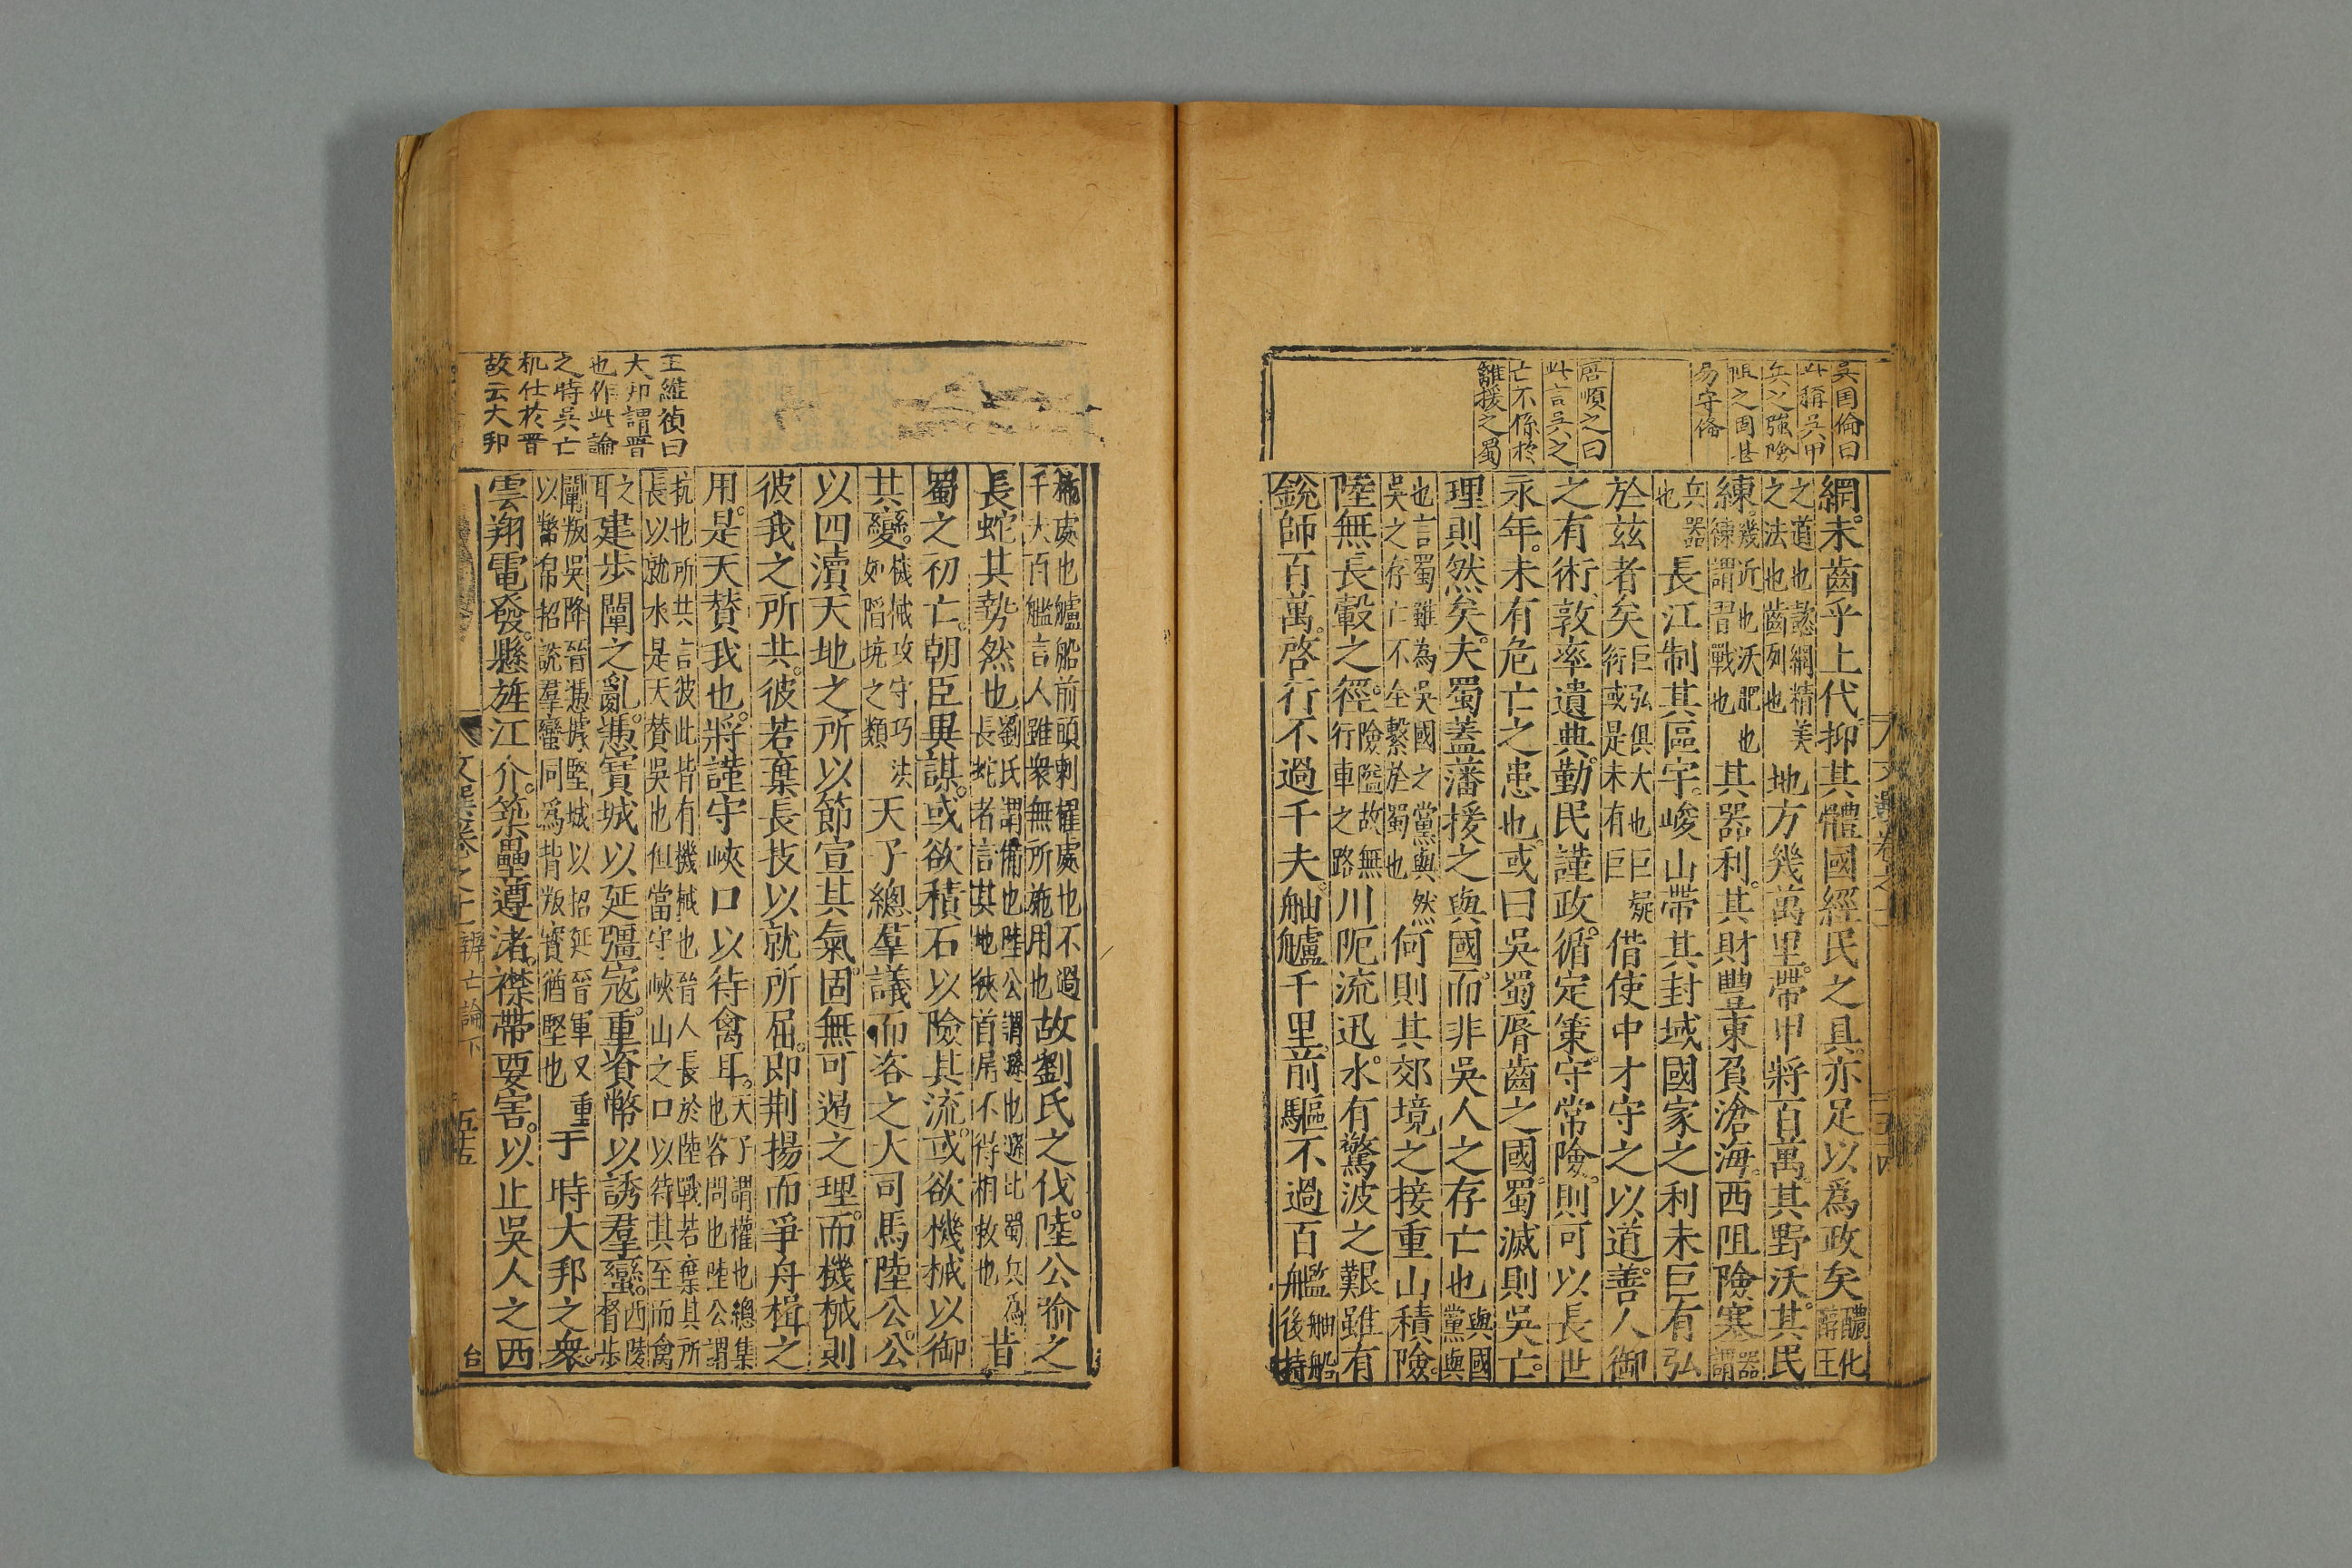 吳國倫曰
此稱吳甲
兵之強險
阻之固甚
易守備
唐順之曰
此言吳之
亡不係於
離援之蜀
網未齒乎上代抑其體國經民之具亦足以爲政矣醲化
之道也懿綱精美
之法也齒列也地方幾萬里帶甲將百萬其野沃其民
練幾近也沃肥也
練謂習戰也其器利其財豐東負滄海西阻險塞器謂
兵器
也長江制其區宇峻山帶其封域國家之利未巨有弘
於茲者矣巨弘俱大也巨
術或是未有巨借使中才守之以道善人御
之有術敦率遺典勤民謹政循定策守常險則可以長世
永年未有危亡之患也或曰吳蜀脣齒之國蜀滅則吳亡
理則然矣夫蜀蓋藩援之與國而非吳人之存亡也與國
黨與
也言蜀雖為吳國之黨與然
吳之存亡不全繫於蜀也何則其郊境之接重山積險
陸無長轂之徑險隘故無
行車之路川阨流迅水有驚波之艱雖有
銳師百萬啓行不過千夫舳艫千里前驅不過百艦舳船
後持
文選卷之十
五十四
王維禎曰
大邦謂晉
也作此論
之時吳亡
机仕於晉
故云大邦
柂處也艫船前頭刺櫂處也不過
千大百艦言人雖衆無所施用也故劉氏之伐陸公喻之
長蛇其勢然也劉氏謂備也陸公謂遜也遜比蜀兵為
長蛇者言其地狹首尾不得相救也昔
蜀之初亡朝臣異謀或欲積石以險其流或欲機械以御
其變機械攻守巧
如陷坑之類天子總羣議而咨之大司馬陸公公
以四瀆天地之所以節宣其氣固無可遏之理而機械則
彼我之所共彼若棄長技以就所屈即荆揚而爭舟楫之
用是天贊我也將謹守峽口以待禽耳天子謂權也總集
也咨問也陸公謂
抗也所共言彼此皆有機械也晉人長於陸戰若棄其所
長以就水是天贊吳也但當守峽山之口以待其至而禽
之
耳建步闡之亂憑寶城以延彊寇重資幣以誘羣蠻西陵
督步
闡叛吳降晉憑據堅城以招延晉軍又重
以幣帛招誘羣蠻同爲背叛寶猶堅也于時大邦之衆
雲翔電發縣旌江介築壘遵渚襟帶要害以止吳人之西
文選卷之十
辨亡論下
五十五
台